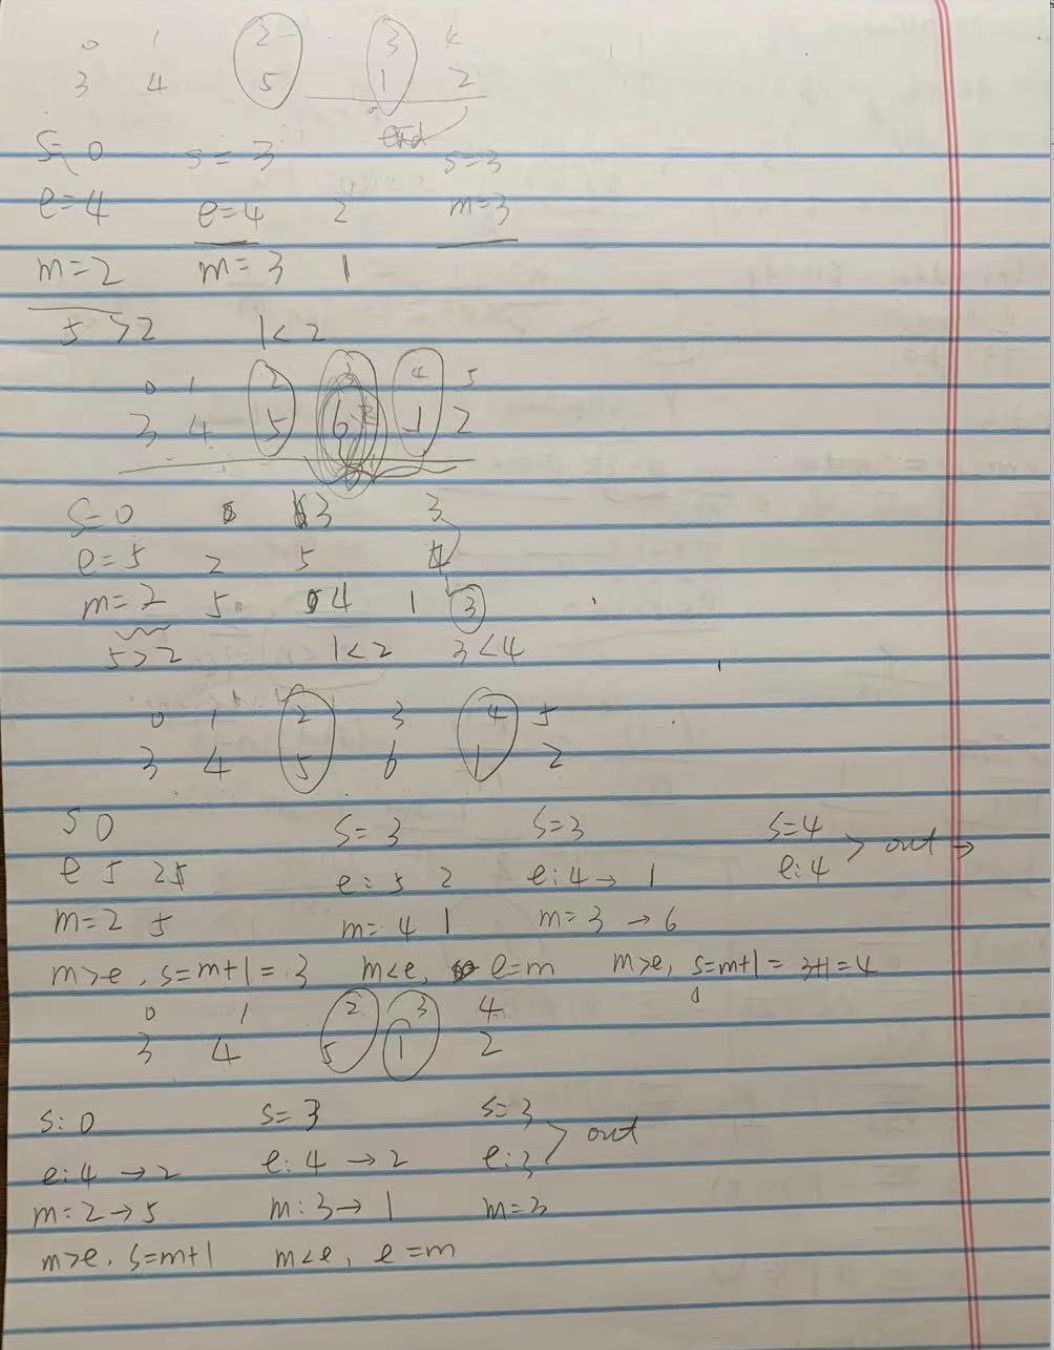 0 1 2 3 4
3 4 5 1 2
end
s=0 s=3 s=3
e=4 e=4 2 m=3
m=2 m=3 1
5>2 1<2
0 1 2 3 4 5
3 4 5 6 1 2
s=0 3 3
e=5 2 5 4
m=2 5 4 1 3
5>2 1<2 3<4
0 1 2 3 4 5
3 4 5 6 1 2
s 0 s=3 s=3 s=4
e 5 2 e=5 2 e:4→1 e:4 > out →
m=2 5 m=4 1 m=3→6
m>e, s=m+1=3 m<e, e=m m>e, s=m+1=3+1=4
0 1 2 3 4
3 4 5 1 2
s:0 s=3 s=3
e:4→2 e:4→2 e:3 > out
m:2→5 m:3→1 m=3
m>e, s=m+1 m<e, e=m